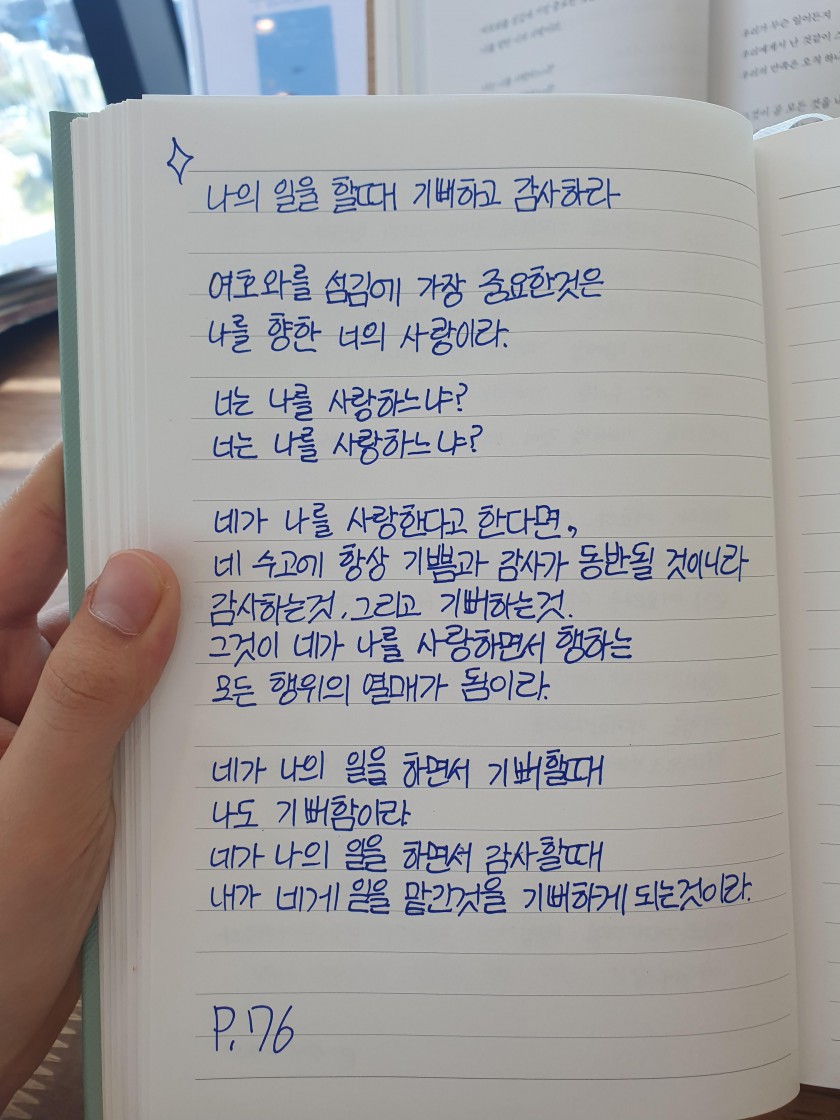 우리가 무슨 일이든지
우리에게서 난 것같이 스
우리의 만족은 오직 하나
나의 일을 할때 기뻐하고 감사하라
여호와를 섬김에 가장 중요한것은
나를 향한 너의 사랑이라.
너는 나를 사랑하느냐?
너는 나를 사랑하느냐?
네가 나를 사랑한다고 한다면,
네 수고에 항상 기쁨과 감사가 동반될 것이니라
감사하는것. 그리고 기뻐하는것.
그것이 네가 나를 사랑하면서 행하는
모든 행위의 열매가 됨이라.
네가 나의 일을 하면서 기뻐할때
나도 기뻐함이라
네가 나의 일을 하면서 감사할때
내가 네게 일을 맡긴것을 기뻐하게 되는것이라.
P.76